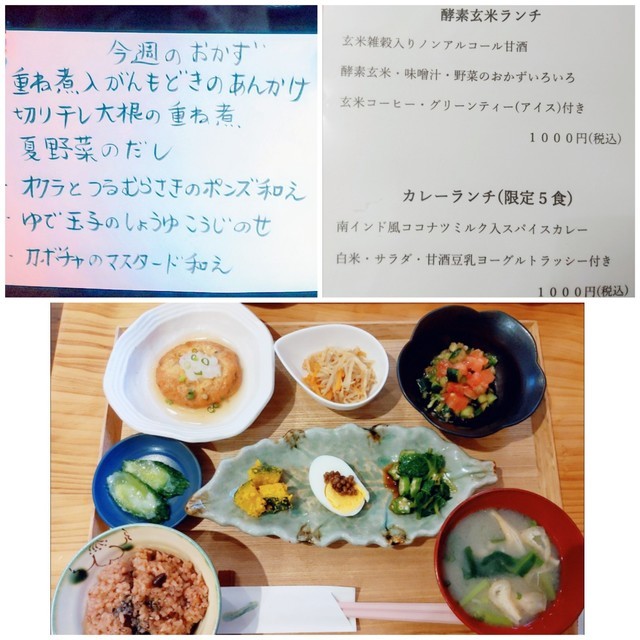 今週のおかず
重ね煮入がんもどきのあんかけ
切り干し大根の重ね煮
夏野菜のだし
・オクラとつるむらさきのポンズ和え
・ゆで玉子のしょうゆこうじのせ
・カボチャのマスタード和え
酵素玄米ランチ
玄米雑穀入りノンアルコール甘酒
酵素玄米・味噌汁・野菜のおかずいろいろ
玄米コーヒー・グリーンティー(アイス)付き
1000円(税込)
カレーランチ(限定5食)
南インド風ココナツミルク入スパイスカレー
白米・サラダ・甘酒豆乳ヨーグルトラッシー付き
1000円(税込)